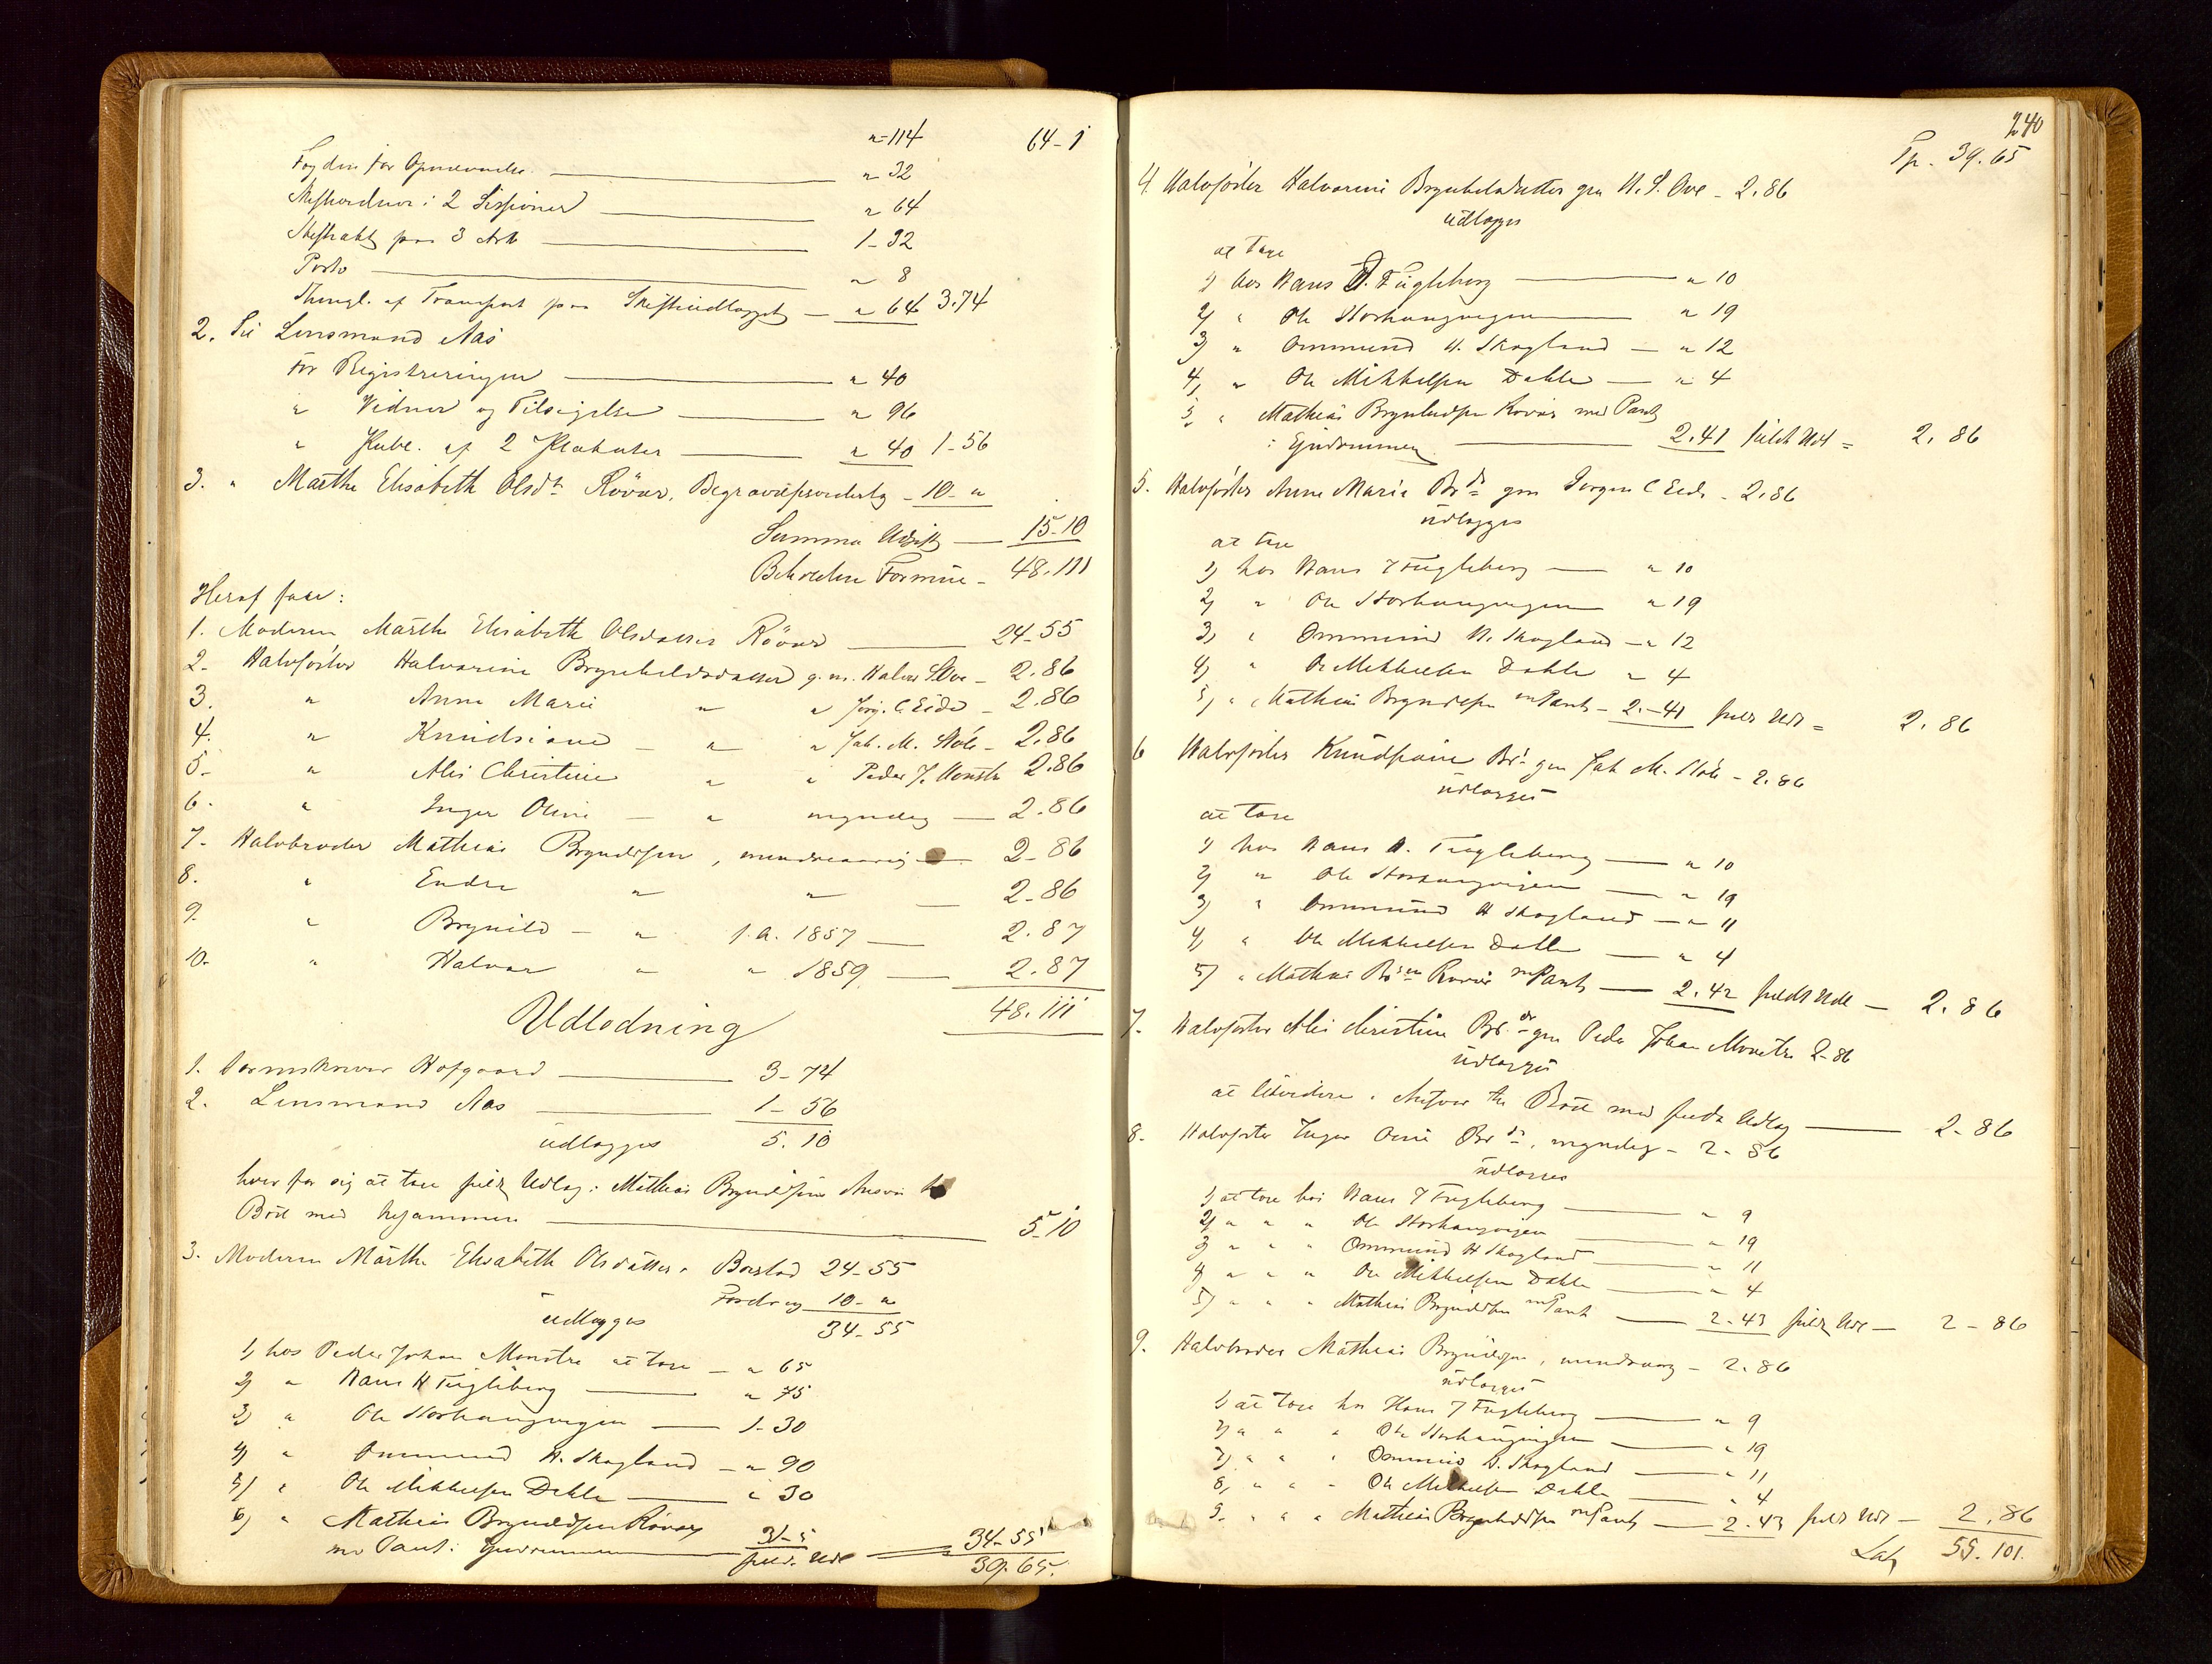 "-114 64-1
Fogden for Opnævnelse " 32
i 2 Sessioner " 64
paa 3 Ark 1-32
Porto " 8
Thingl. af Transport paa Skifteudlægget " 64 3.74
2. Til Lensmand Aas
For Registreringen " 40
" Vidner og Tilsigelse " 96
" Publ. af 2 Plakater " 40 1-56
3. " Marthe Elisabeth Olsdtr Røvær, 10 - "
Summa Udgift 15-10
Beholden Formue - 48.111
Heraf faar:
1. Moderen Marthe Elisabeth Olsdatter Røvær 24-55
2. Halvsøster Halvarine Brynhildsdatter g.m. Halvor S. Ove - 2.86
3. " Anne Marie " " Jørg. C. Eide - 2.86
4. " Knudsiane - " " Jak. M. - 2.86
5. " Alis Christine " " Peder J. 2.86
6. " Inger Oline - " myndig - 2.86
7. Halvbroder Mathias Bryndilsen, mindreaarig - 2-86
8. " Endre " " - 2-86
9. " Brynild - " f.a. 1857 - 2.87
10. " Halvor " " 1859 - 2.87
48.111
Udlodning
1. Sorenskriver Hofgaard 3-74
2. Lensmand Aas 1-56
udlægges 5.10
hver for sig at tage fuldt Udlæg i Mathias
Baad med tilsammen 5.10
3. Moderen Marthe Elisabeth Olsdatter 24-55
Fordring 10 - "
udlægges 34-55
1) hos Peder Johan Monstre at tage - " 65
2) " Hans H Fugleberg " 75
3) " Ole Storhaugvegen 1-30
4) " Ommund H. Skogland - " 90
5) " Ole Mikkelsen Dahle " 30
6) " Mathias Bryndilsen Røvær
31-5 34-55
med Pant i Eiendommen fuldt Udl 39.65.
240
Tp. 39.65
4. Halvsøster Halvarine Brynhildsdatter gm H. S. Ove - 2.86
udlægges
at tage
1) hos Hans J. Fugleberg " 10
2) " Ole Storhaugvegen " 19
3) " Ommund H. Skogland - " 12
4) " Ole Mikkelsen Dahle - " 4
5) " Mathias Bryndilsen Røvær med Pant
i Eiendommen 2.41 fuldt Udl = 2.86
5. Halvsøster Anne Marie Brdr gm Jørgen C Eide - 2.86
udlægges
at tage
1) hos Hans J Fugleberg - " 10
2) " Ole Storhaugvegen " 19
3) " Ommund H. Skogland - " 12
4) " Ole Mikkelsen Dahle " 4
5) " Mathias Bryndilsen m Pant - 2.-41 fuldt Udl = 2.86
6 Halvsøster Knudsiane Brd gm Jak M. - 2.86
udlægges
at tage
1) hos Hans H. Fugleberg - " 10
2) " Ole Storhaugvegen - " 19
3) " Ommund H Skogland - " 11
4) " Ole Mikkelsen Dahle - " 4
5) " Mathias Brsen Røvær m Pant - 2.42 fuldt Udl - 2.86
7. Halvsøster Alis Christine Brdr gm Peder Johan Monstre 2-86
udlægges
at Baad med fuldt Udlæg 2-86
8. Halvsøster Inger Oline Brdr, myndig - 2.86
udlægges
1) at tage hos Hans J Fugleberg " 9
2) " " " Ole Storhaugvegen " 19
3) " " " Ommund H Skogland " 11
4) " " " Ole Mikkelsen Dahle " 4
5) " " " Mathias Bryndilsen m Pant - 2-43 fuldt Udl - 2-86
9. Halvbroder Mathias Bryndilsen, mindreaarig - 2.86
udlægges
1) at tage hos Hans J Fugleberg " 9
2) " " " Ole Storhaugvegen " 19
3) " " " Ommund H. Skogland " 11
8, " " " Ole Mikkelsen Dahle " 4
5. " " " Mathias Bryndilsen m Pant - 2-43 fuldt Udl - 2.86
Lat. 55.101.